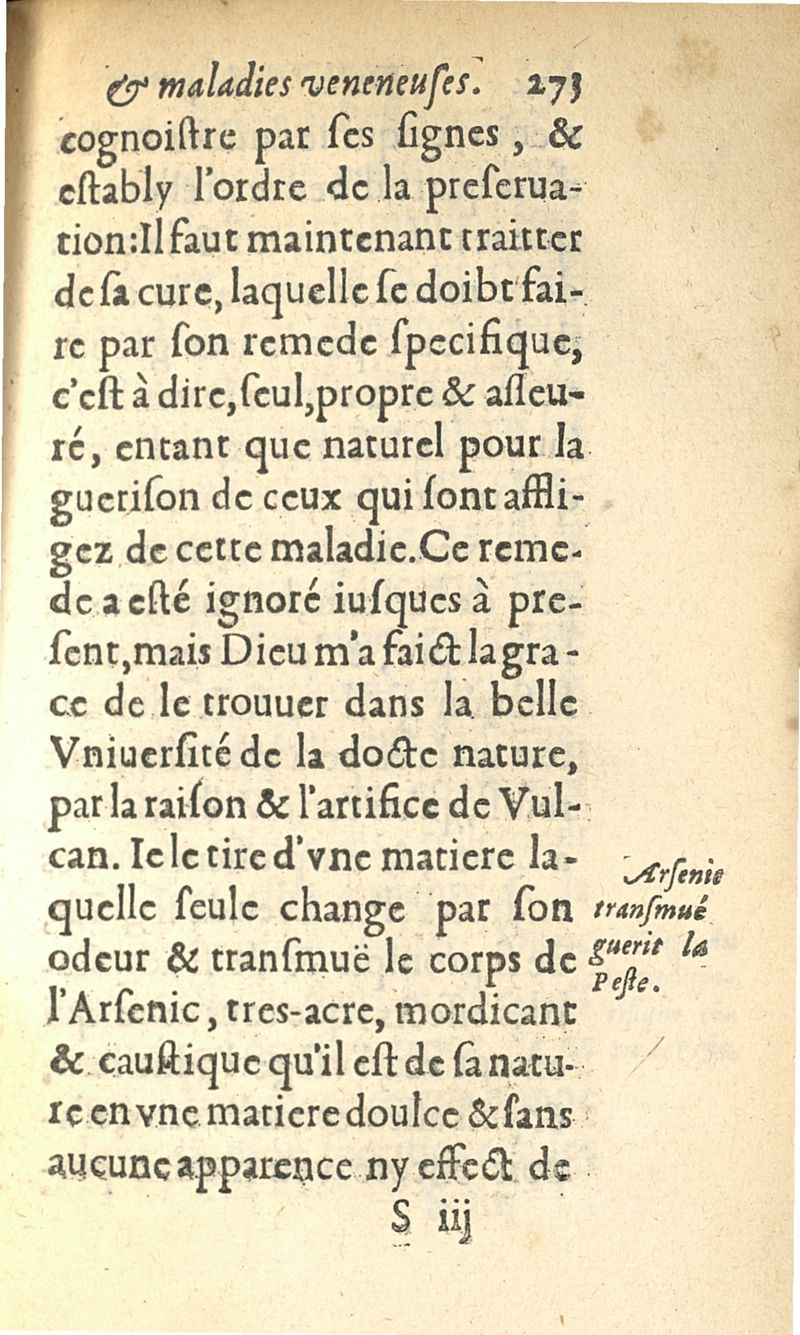 & maladies veneneuſes. 273
cognoiſtre par ſes ſignes, &
eſtably l'ordre de la preſerua-
tion:Il faut maintenant traitter
de ſa cure, laquelle ſe doibt fai-
re par ſon remede ſpecifique,
c'eſt à dire, ſeul, propre & aſſeu-
ré, entant que naturel pour la
gueriſon de ceux qui ſont affli-
gez de cette maladie. Ce reme-
de a eſté ignoré iuſques à pre-
ſent, mais Dieu m'a faict la gra-
ce de le trouuer dans la belle
Vniuerſité de la docte nature,
par la raiſon & l'artifice de Vul-
can. Ie le tire d'vne matiere la-
quelle ſeule change par ſon
odeur & tranſmuë le corps de
l'Arſenic, tres-acre, mordicant
& cauſtique qu'il eſt de ſa natu-
re en vne matiere doulce & ſans
aucune apparence ny effect de
Arſenic
tranſmué
guerit la
Peſte.
S iij